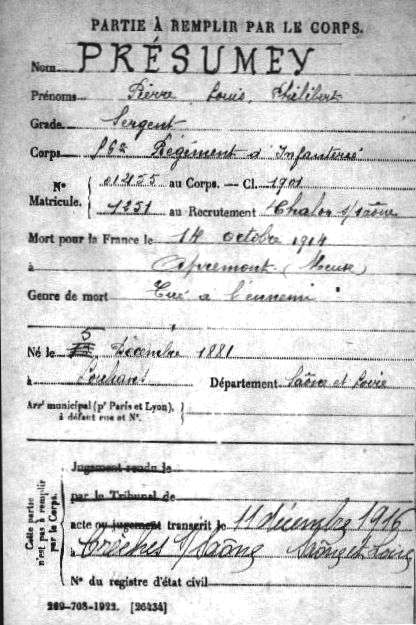 PARTIE À REMPLIR PAR LE CORPS.
Nom PRÉSUMEY
Prénoms Pierre Louis Philibert
Grade Sergent
Corps Régiment d'Infanterie
N° Matricule. 01455 au Corps. — Cl. 1901
1251 au Recrutement Chalon s/Saône
Mort pour la France le 14 octobre 1914
à Apremont (Meuse)
Genre de mort Tué à l'ennemi
Né le 5 Décembre 1881
à Département Saône et Loire
Arrt municipal (pr Paris et Lyon),
à défaut rue et N°.
Cette partie n'est pas à remplir par le Corps.
Jugement rendu le
par le Tribunal de
acte ou jugement transcrit le 11 décembre 1916
à Crèches s/Saône Saône et Loire
N° du registre d'état civil
269-708-1922. [26434]